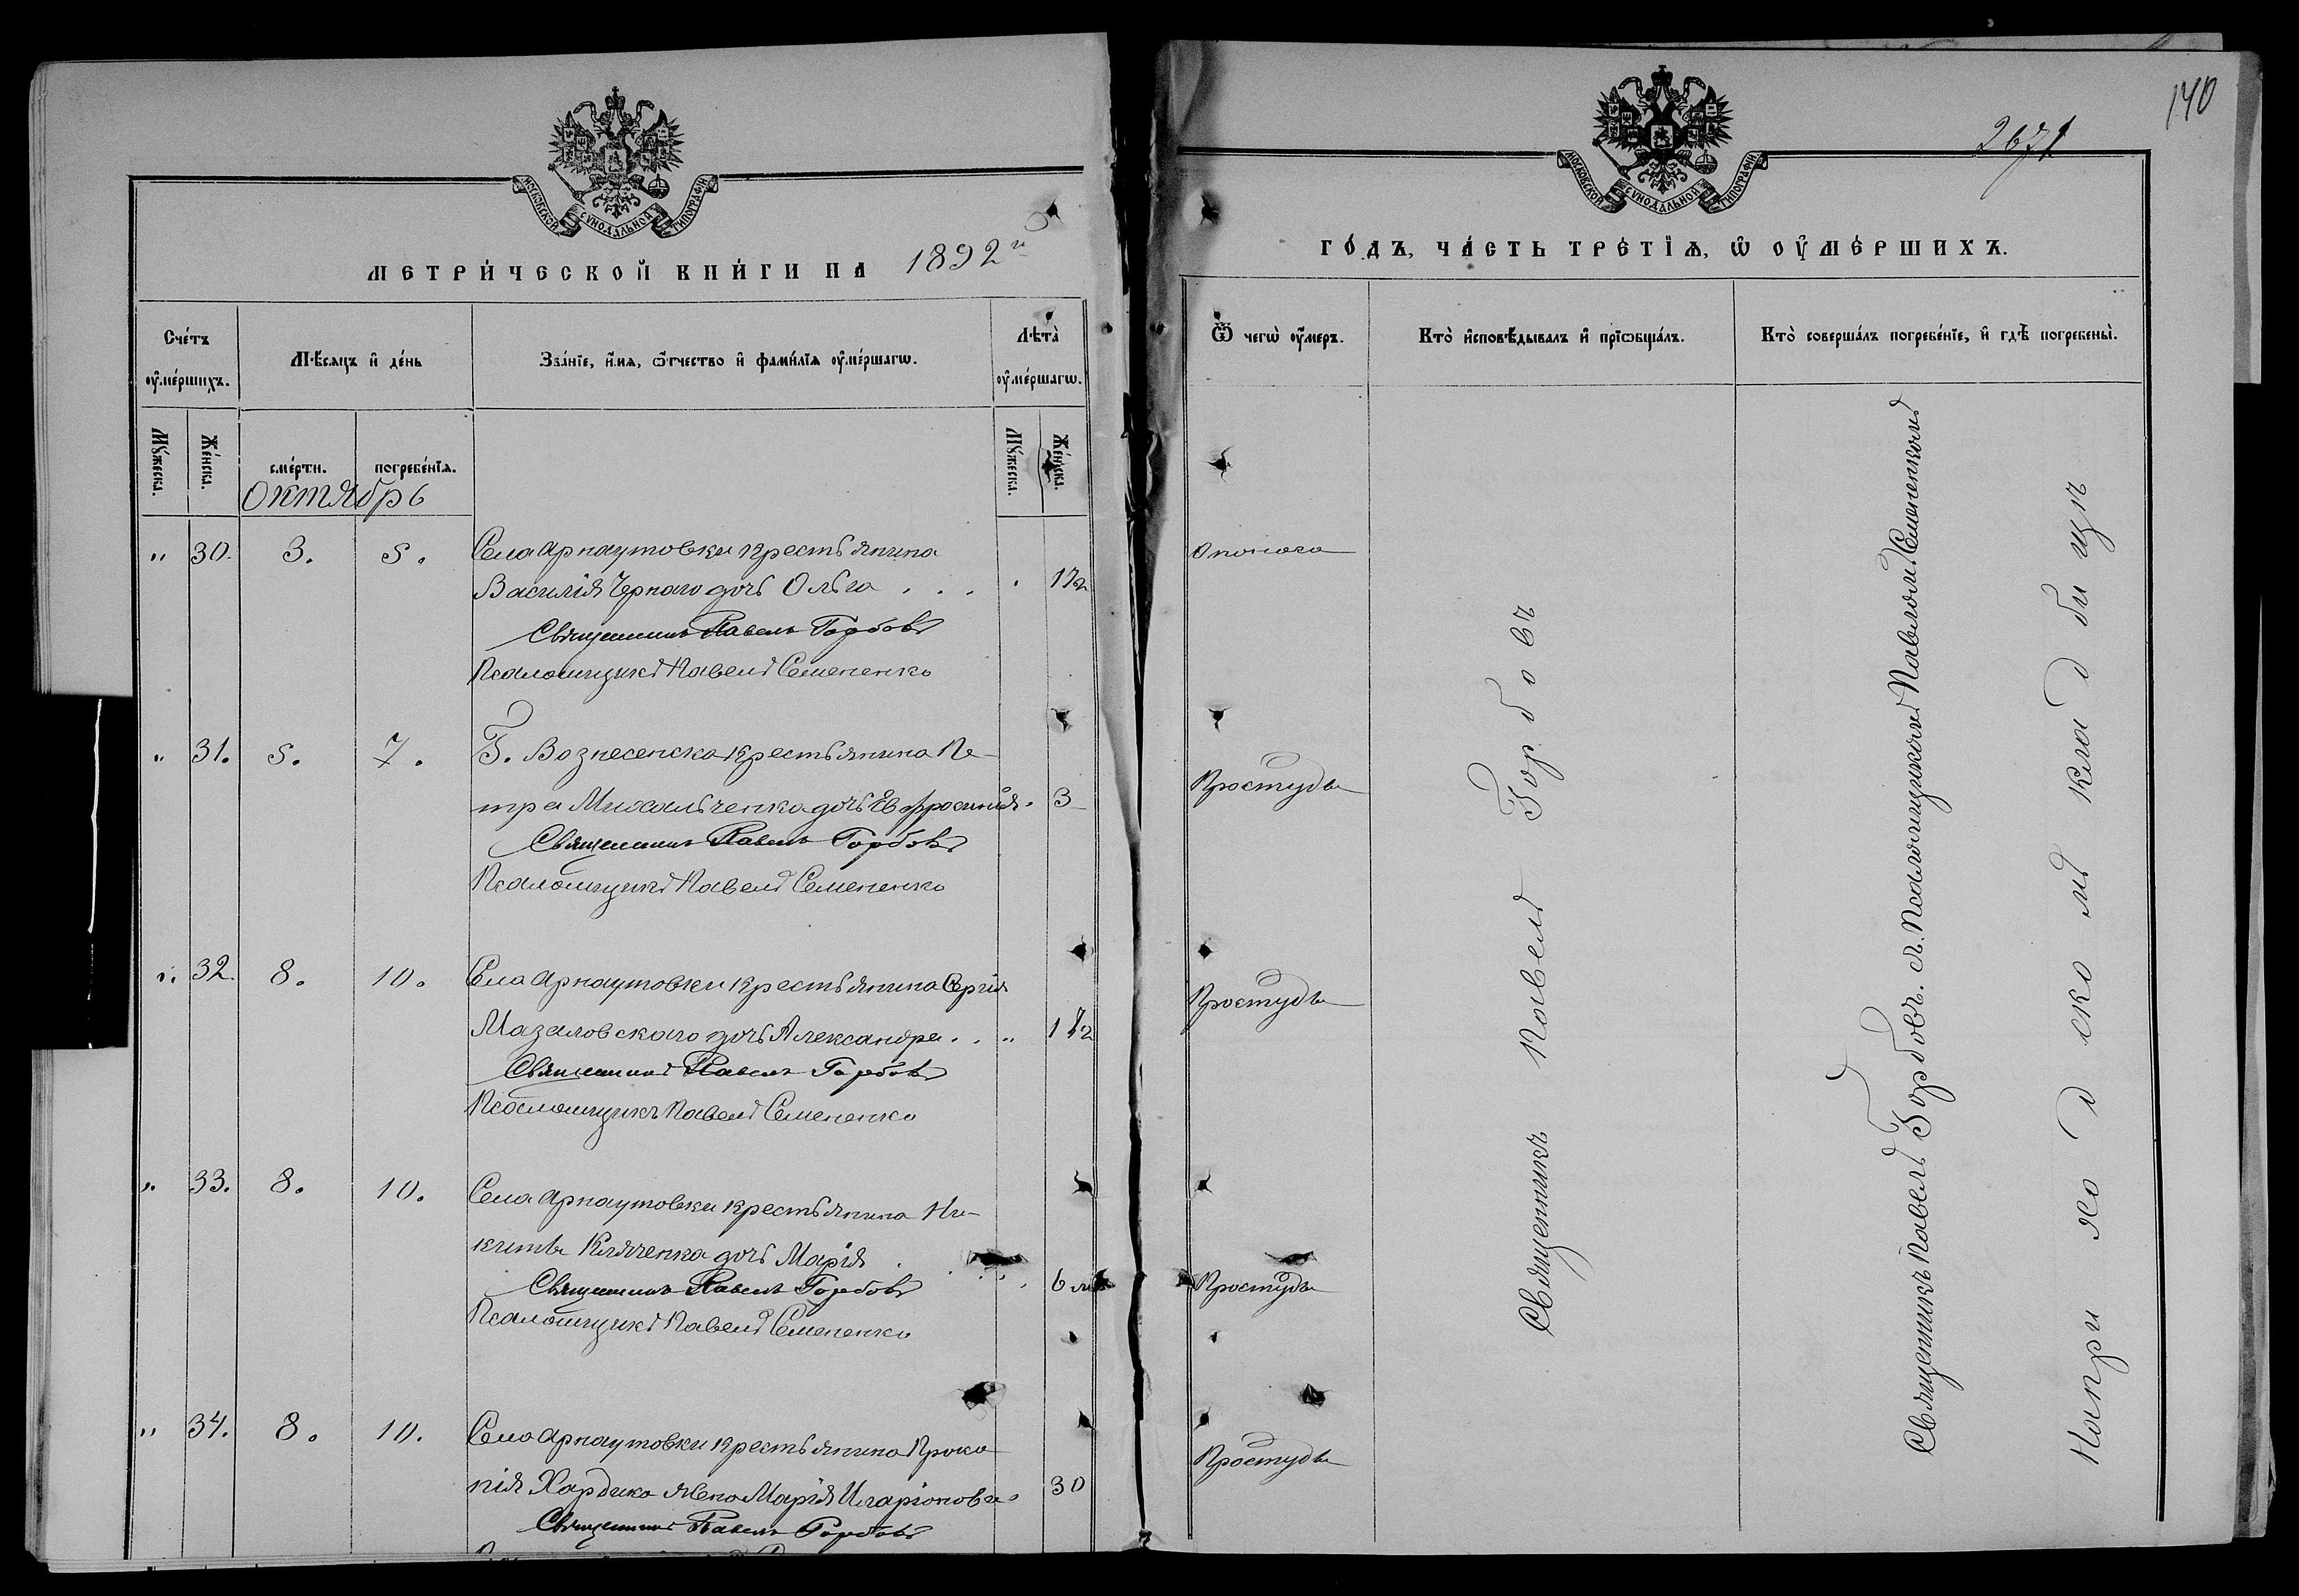 МОСКОВСКОЙ СѴНОДАЛЬНОЙ ТИПОГРАФІИ
МЕТРИ́ЧЕСКОЙ КНИ́ГИ НА 1892 й
Сче́тъ оу҆ме́ршихъ.
Мѣ́сяцъ и҆ де́нь
Зва́нїе, и҆́мя, ѻ҆́тчество и҆ фами́лїя оу҆ме́ршагѡ.
Лѣта̀ оу҆ме́ршагѡ.
Мꙋ́жеска.
Же́нска.
сме́рти.
погребе́нїя.
Мꙋ́жеска.
Же́нска.
Октябрь
" 30. 3. 5. Села Арнаутовки крестьянина
Василія Чернаго дочь Ольга . . . 1½
Священникъ Павелъ Горбовъ
Псаломщикъ Павелъ Семененко
" 31. 5. 7. Г. Вознесенска крестьянина Пе-
тра Михальченка дочь Евфросинія. 3
Священникъ Павелъ Горбовъ
Псаломщикъ Павелъ Семененко
" 32. 8. 10. Села Арнаутовки крестьянина Сергія
Мазаловскаго дочь Александра . . " 1½
Священникъ Павелъ Горбовъ
Псаломщикъ Павелъ Семененко
" 33. 8. 10. Села Арнаутовки крестьянина Ни-
киты Кляченка дочь Марія . . . 6 м
Священникъ Павелъ Горбовъ
Псаломщикъ Павелъ Семененко
" 34. 8. 10. Села Арнаутовки крестьянина Проко-
пія Хардико жена Марія Иларіонова 30
Священникъ Павелъ Горбовъ
140
2671
МОСКОВСКОЙ СѴНОДАЛЬНОЙ ТИПОГРАФІИ
ГО́ДЪ, ЧА́СТЬ ТРЕ́ТЇѦ, Ѡ҆ ОУ҆МЕ́РШИХЪ.
Ѿ чегѡ̀ оу҆́меръ.
Кто̀ и҆сповѣ́дывалъ и҆ прїѡбща́лъ.
Кто̀ соверша́лъ погребе́нїе, и҆ гдѣ̀ погребены̀.
Простуды
Простуды
Простуды
Простуды
Священникъ Павелъ Горбовъ
Священникъ Павелъ Горбовъ съ Псаломщикомъ Павломъ Семененкомъ
На приходскомъ кладбищѣ